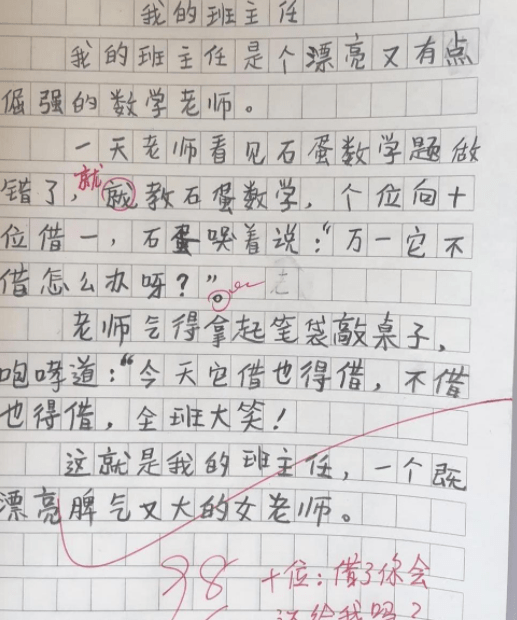 我的班主任
我的班主任是个漂亮又有点
倔强的数学老师。
一天老师看见石蛋数学题做
错了,就教石蛋数学,个位向十
位借一,石蛋哭着说:"万一它不
借怎么办呀?"。
老师气得拿起笔袋敲桌子,
咆哮道:"今天它借也得借,不借
也得借,全班大笑!
这就是我的班主任,一个既
漂亮脾气又大的女老师。
38
十位:借了你会
还给我吗?